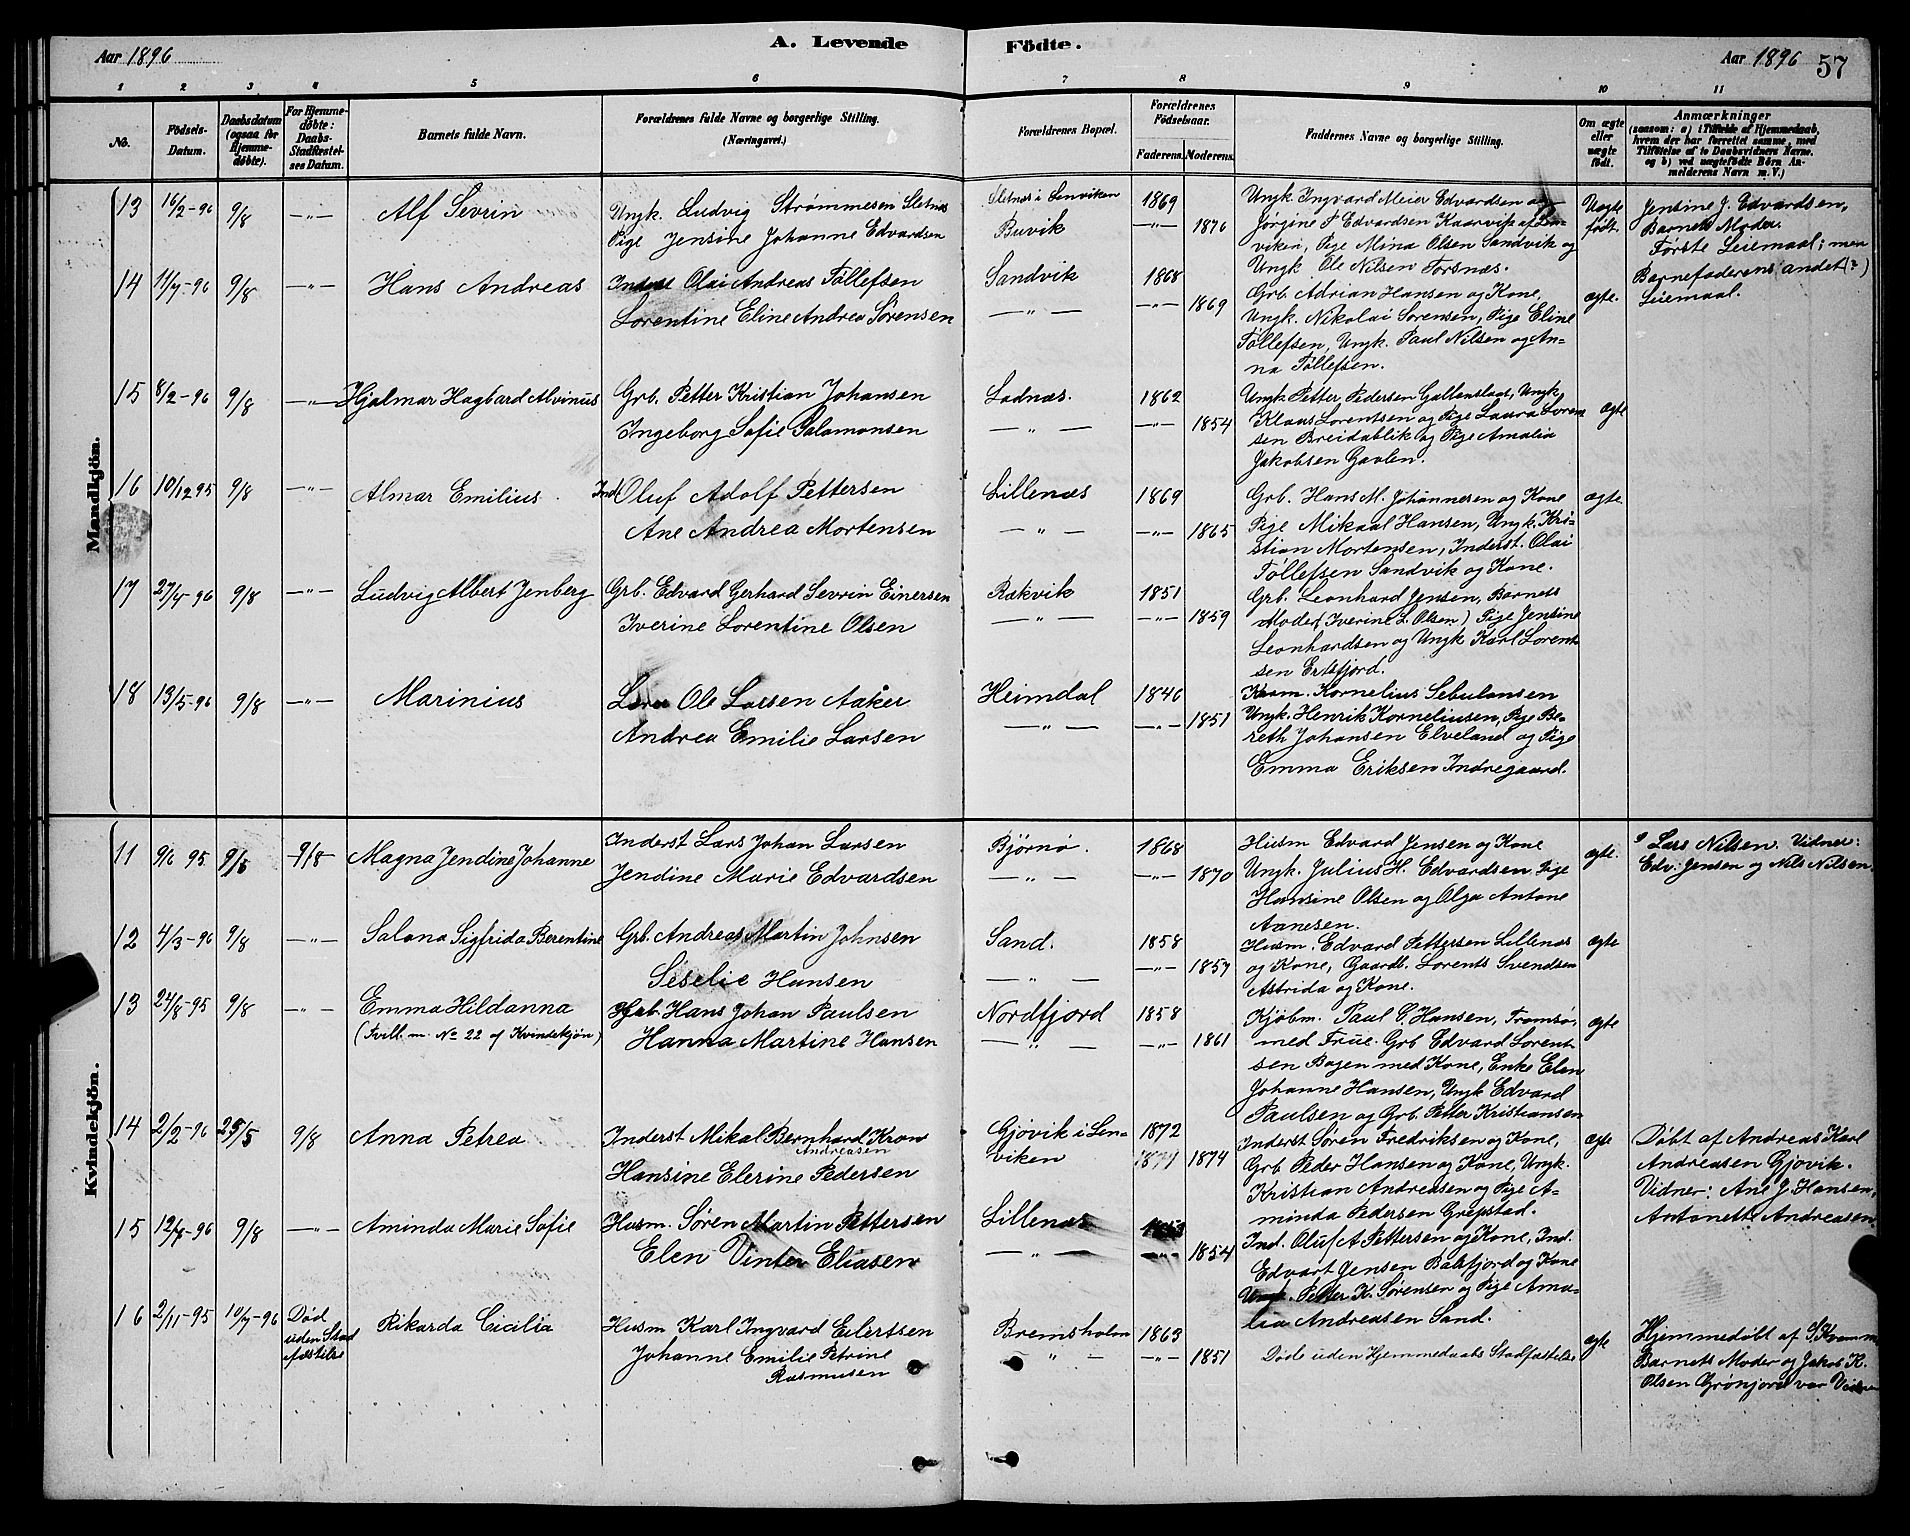 Aar 1896
A. Levende
Födte.
Aar 1896
57
1 2 3 4 5 6 7 8 9 10 11
No.
Födsels-Datum.
Daabsdatum (ogsaa for Hjemme-døbte).
For Hjemme-døbte: Daabs-Stadfæstel-ses Datum.
Barnets fulde Navn.
Forældrenes fulde Navne og borgerlige Stilling.
(Næringsvei.)
Forældrenes Bopæl.
Forældrenes Födselsaar.
Faderens. Moderens.
Faddernes Navne og borgerlige Stilling.
Om ægte eller uægte født.
Anmærkninger
(saasom: a) i Tilfælde af Hjemmedaab,
hvem der har forrettet samme, med
Tilføielse af to Daabsvidners Navne,
og b) ved uægtefødte Börn An-
melderens Navn m. V.)
Mandkjön.
13 16/2-96 9/8 —"— Alf Sevrin
Ungk. Ludvig Strømmesen Sletnes
Pige Jensine Johanne Edvardsen
Sletnes i Lenviken 1869
Buvik —"— 1876
Ungk Ingvard Meier Edvardsen og
Jørgine P Edvardsen Kaarvik af Len-
viken, Pige Mina Olsen Sandvik og
Ungk Ole Nilsen Forsnæs.
Uægte født.
Jensine J. Edvardsen,
Barnets Moder.
Første Leiemaal; men
Barnefaderens andet (?)
Leiemaal.
14 11/7-96 9/8 —"— Hans Andreas
Inderst Olai Andreas Töllefsen
Lorentine Eline Andrea Sörensen
Sandvik 1868
—"— —"— 1869
Grb. Adrian Hansen og Kone,
Ungk. Nikolai Sørensen, Pige Eline
Töllefsen, Ungk. Paul Nilsen og An-
na Töllefsen.
ægte.
15 8/2-96 9/8 —"— Hjalmar Hagbard Alvinus
Grb. Petter Kristian Johansen
Ingeborg Sofie Salamonsen
Ladnæs. 1862
—"— —"— 1854
Ungk Petter Pedersen Galtenslaat, Ungk
Klaus Lorentsen og Pige Laura Loren
sen Breidablik og Pige Amalia
Jakobsen Gavlen.
ægte
16 10/12 95 9/8 —"— Almar Emilius
Ind Oluf Adolf Pettersen
Ane Andrea Mortensen
Lillenæs 1869
—"— —"— 1865
Grb. Hans M. Johannesen og Kone
Pige Mikaal Hansen, Ungk. Kri-
stian Mortensen, Inderst. Olai
Töllefsen Sandvik og Kone.
ægte.
17 27/4-96 9/8 —"— Ludvig Albert Jenberg
Grb. Edvard Gerhard Sevrin Einersen
Iverine Lorentine Olsen
Rækvik 1851
—"— —"— 1859
Grb. Leonhard Jensen, Barnets
Moder (Iverine L. Olsen) Pige Jensine
Leonhardsen og Ungk Karl Lorent
sen Ersfjord.
18 13/5-96 9/8 —"— Marinius
Lærer Ole Larsen Aaker
Andrea Emilie Larsen
Heimdal 1846
—"— —"— 1851
Kornelius Sebulonsen
Ungk. Henrik Korneliusen, Pige Be-
reth Johansen Elveland og Pige
Emma Eriksen Indregaard.
Kvindekjön.
11 9/6 95. 9/8 Magna Jendine Johanne
Inderst Lars Johan Larsen
Jendine Marie Edvardsen
Bjørnø. 1868
—"— —"— 1870
Husm Edvard Jensen og Kone
Ungk. Julius H. Edvardsen, Pige
Hansine Olsen og Olga Antone
Aanesen.
ægte.
Lars Nilsen. Vidner:
Edv. Jensen og Nils Nilsen.
12 4/3-96 9/8 —"— Salona Sigfrida Berentine
Grb. Andreas Martin Johnsen
Siselie Hansen
Sand. 1858
—"— —"— 1857
Husm. Edvard Pettersen Lillenæs
og Kone, Gaardb. Lorents Svendsen
Astrida og Kone.
ægte
13 24/8-95 9/8 —"— Emma Hildanna
(Tvill. m. No 22 af Kvindekjön)
Hans Johan Paulsen
Hanna Martine Hansen
Nordfjord 1858
—"— —"— 1861
Kjöbm. Paul C. Hansen, Tromsø,
med Frue. Grb Edvard Lorent
sen Bagen med Kone, Enke Elen
Johanne Hansen, Ungk Edvard
Paulsen og Grb. Petter Kristiansen
ægte
14 2/2-96 25/5 9/8 Anna Petrea
Inderst Mikal Bernhard Kron
Andreasen
Hansine Elerine Pedersen
Gjövik i Len-
viken
1872
1874 1874
Inderst Sören Fredriksen og Kone,
Grb Peder Hansen og Kone, Ungk.
Kristian Andreasen og Pige A-
minda Pedersen Grepstad.
ægte
Døbt af Andreas Karl
Andreasen Gjövik.
Vidner: Ane J. Hansen,
Antonette Andreasen
15 12/4-96 9/8 —"— Aminda Marie Sofie
Husm. Sören Martin Pettersen
Elen Vinter Eliasen
Lillenæs
—"— —"— 1854
Ind. Oluf A Pettersen og Kone, Ind.
Edvart Jensen Balsfjord og Kone
Ungk. Petter K. Sørensen og Pige Ama-
lia Andreasen Sand.
16 2/11-95 10/7-96 Død uden Stad
fæstelse
Rikarda Cicilia
Husm Karl Ingvard Eilertsen
Johanne Emilie Petrine
Rasmusen
Bremsholm 1863
" — —"— 1851
Døde uden Hjemmedaabs Stadfæstelse
ægte
Hjemmedøbt af
Barnets Moder og Jakob K.
Olsen Grönjord var Vidner